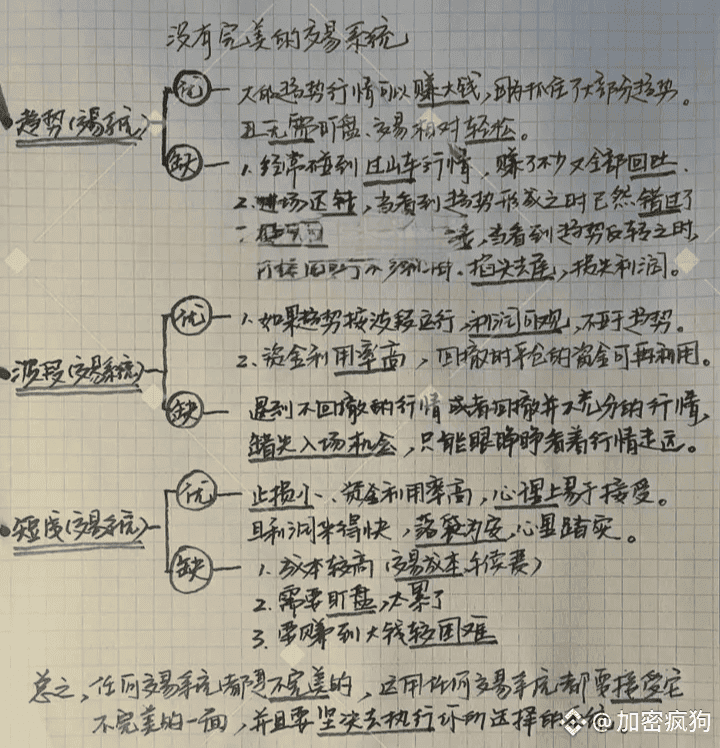 没有完美的交易系统
趋势(交易系统)
优
大的趋势行情可以赚大钱,因为抓住了大部分趋势。
且无需盯盘、交易相对轻松。
缺
1. 经常碰到过山车行情,赚了不少又全部回吐.
2. 进场迟钝,当看到趋势形成之时已然错过了
,当看到趋势反转之时,
掐头去尾,损失利润。
波段(交易系统)
优
1. 如果趋势按波段运行,利润可观,不亚于趋势。
2. 资金利用率高,回撤时平仓的资金可再利用。
缺
遇到不回撤的行情或者回撤并不充分的行情,
错失入场机会,只能眼睁睁看着行情走远。
短线(交易系统)
优
止损小、资金利用率高,心理上易于接受。
且利润来得快,落袋为安,心里踏实。
缺
1. 成本较高(交易成本手续费)
2. 需要盯盘,太累了
3. 要赚到大钱较困难
总之,任何交易系统都是不完美的,运用任何交易系统都要接受它
不完美的一面,并且要坚决去执行你所选择的
@加密疯狗